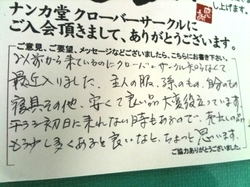 し上げます。
ナンカ堂 クローバーサークルに
ご入会頂きまして、ありがとうございます。
ご意見、ご要望、メッセージなどございましたら、こちらにお書き下さい
以前から来ているのにクローバーサークル知らなくて
最近入りました。主人の服、孫のもの、自分のもの
寝具その他、安くて良い品大変役立っています
チラシ初日に来れない時もあるので、売出しの品
もう少し多くあると良いなと、ちょっと思います。
ご協力ありがとうございました。